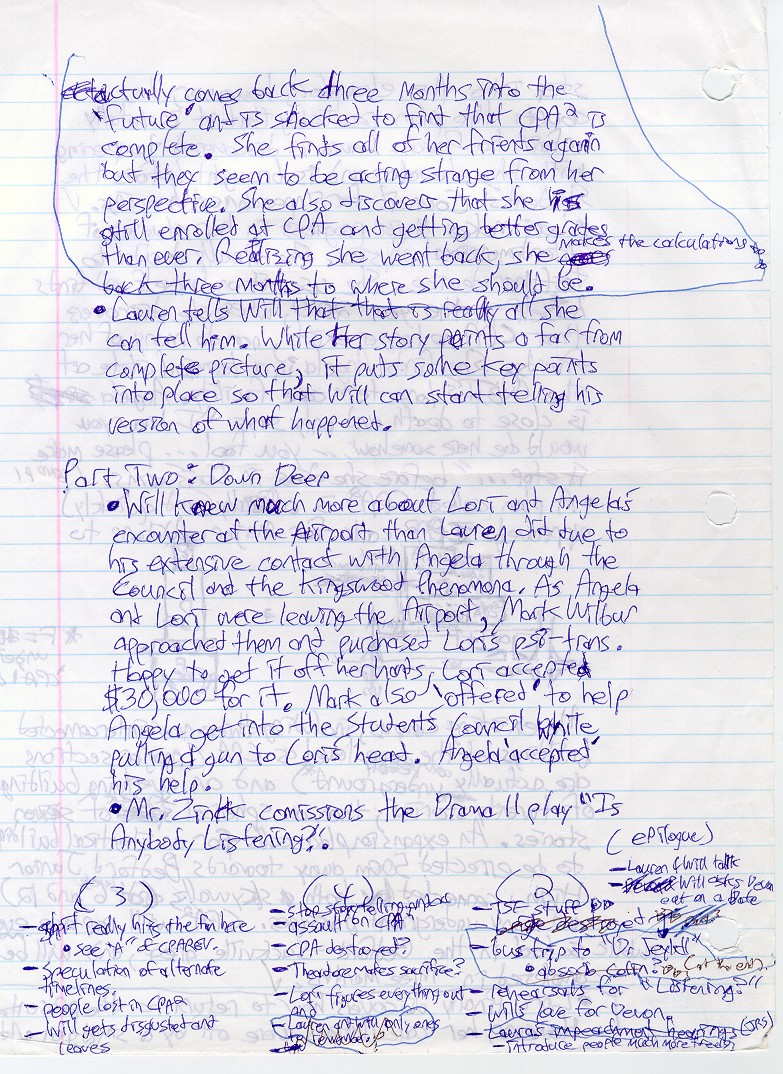 actually comes back three months into the
"future" and is shocked to find that CPA² is
complete. She finds all of her friends again
but they seem to be acting strange from her
perspective. She also discovers that she is
still enrolled at CPA and getting better grades
than ever. Realizing she went back, she makes the calculations
back three months to where she should be.
• Lauren tells Will that that is really all she
can tell him. While Her story paints a far from
complete picture, it puts some key points
into place so that Will can start telling his
version of what happened.
Part Two: Down Deep
• Will knew much more about Lori and Angela's
encounter at the Airport than Lauren did due to
his extensive contact with Angela through the
Council and the Kingswood Phenomona. As Angela
and Lori were leaving the Airport, Mark Wilbur
approached them and purchased Lori's psi-trans.
Happy to get it off her hands, Lori accepted
$30,000 for it. Mark also "offered" to help
Angela get into the Students Council while
pulling a gun to Lori's head. Angela "accepted"
his help.
• Mr. Zinkk comissions the Drama II play "Is
Anybody Listening?".
(3)
— shit really hits the fan here
• see "A" of CPAREV.
— speculation of alternate
timelines.
— people lost in CPA²
— Will gets disgusted and
leaves
(4)
— stop storytelling
— assault on CPA
— CPA destroyed?
— Theodore makes sacrifice?
— Lori figures everything out
and
— Lauren and Will only ones
to remember?
(2)
— TSF stuff
— bus trip to "Dr Jeykll"
• absorb (at the end)
— rehearsals for "Listening?"
— Wills love for Devon.
— Laura's impeachment hearings (JRS)
— introduce people much more freely
(epilogue)
— Lauren & Will talk
— Will asks Devon
out on a date